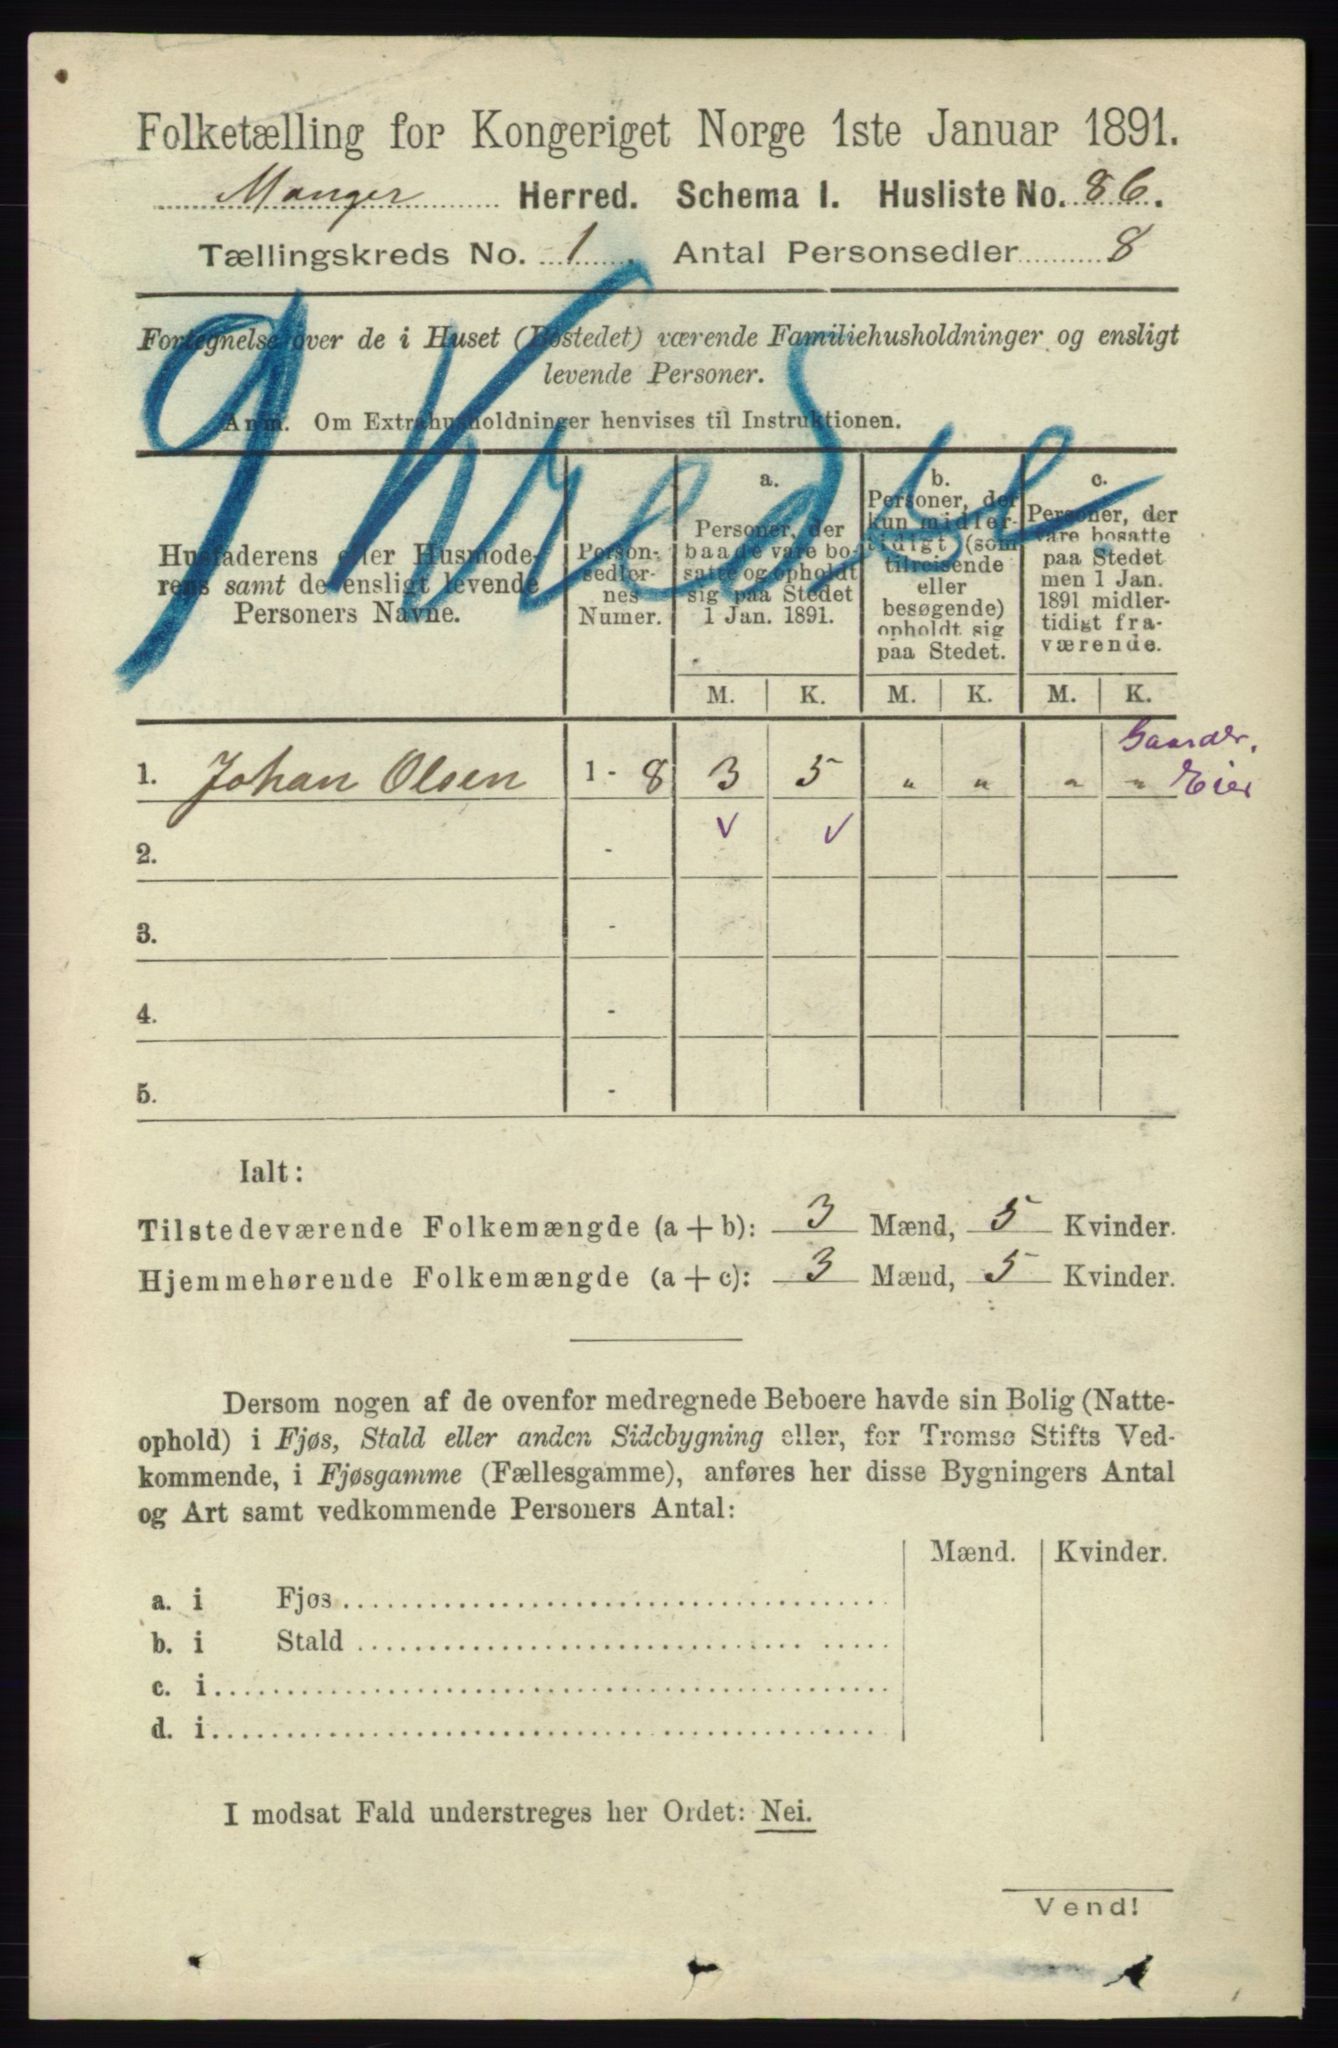 Folketælling for Kongeriget Norge 1ste Januar 1891.
Manger Herred. Schema I. Husliste No. 86.
Tællingskreds No. 1. Antal Personsedler 8
Fortegnelse over de i Huset (Bostedet) værende Familiehusholdninger og ensligt
levende Personer.
Anm. Om Extrahusholdninger henvises til Instruktionen.
Husfaderens eller Husmode-
rens samt de ensligt levende
Personers Navne.
Person-
sedler-
nes
Numer.
a.
Personer, der
baade vare bo-
satte og opholdt
sig paa Stedet
1 Jan. 1891.
b.
Personer, der
kun midler-
tidigt (som
tilreisende
eller
besøgende)
opholdt sig
paa Stedet.
c.
Personer, der
vare bosatte
paa Stedet
men 1 Jan.
1891 midler-
tidigt fra-
værende.
M. K. M. K. M. K.
Gaarder,
1. Johan Olsen 1 - 8 3 5 " " " " Eier
v v
2. -
3. -
4. -
5. -
Ialt:
Tilstedeværende Folkemængde (a + b): 3 Mænd, 5 Kvinder.
Hjemmehørende Folkemængde (a + c): 3 Mænd, 5 Kvinder.
Dersom nogen af de ovenfor medregnede Beboere havde sin Bolig (Natte-
ophold) i Fjøs, Stald eller anden Sidebygning eller, for Tromsø Stifts Ved-
kommende, i Fjøsgamme (Fællesgamme), anføres her disse Bygningers Antal
og Art samt vedkommende Personers Antal:
Mænd. Kvinder.
a. i Fjøs
b. i Stald
c. i
d. i
I modsat Fald understreges her Ordet: Nei.
Vend!